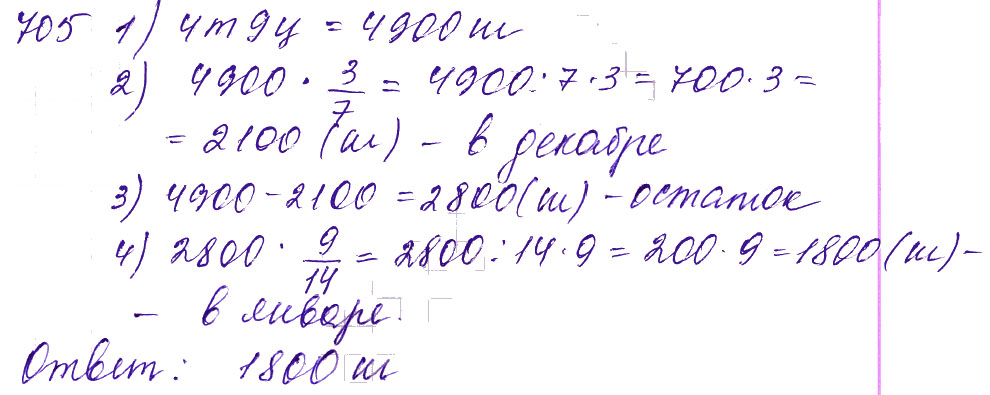 705 1) 4т 9ц = 4900 ш
2) 4900 · 3/7 = 4900 : 7 · 3 = 700 · 3 =
= 2100 (ш) – в декабре
3) 4900 – 2100 = 2800 (ш) – остаток
4) 2800 · 9/14 = 2800 : 14 · 9 = 200 · 9 = 1800 (ш) –
– в январе.
Ответ: 1800 ш